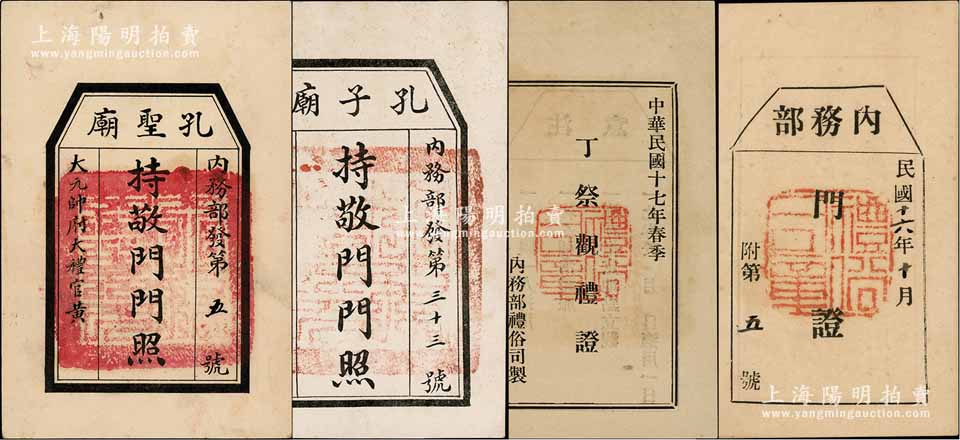 上海陽明拍賣
www.yangmingauction.com
孔聖廟
內務部發第五號
持敬門門照
大元帥府大禮官黃
孔子廟
內務部發第三十三號
持敬門門照
上海陽明拍賣
www.yangmingauction.com
中華民國十七年春季
丁祭觀禮證
內務部禮俗司製
內務部
民國十六年十月
門證
附第五號
禮俗司章
上海陽明拍賣
www.yangmingauction.com